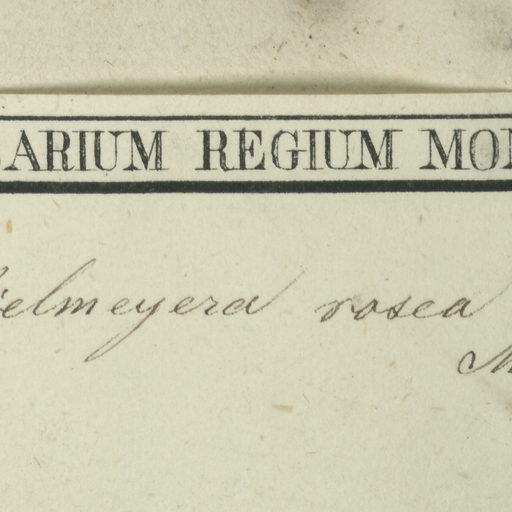 BARIUM REGIUM MON
ielmeyera rosea
M